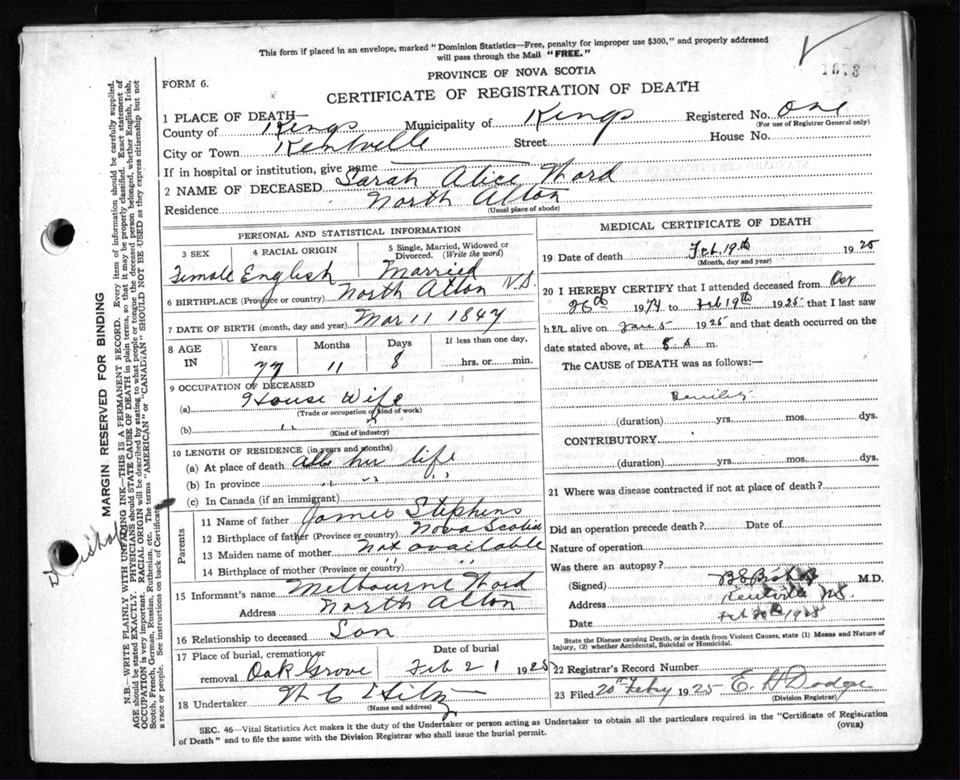 This form if placed in an envelope, marked "Dominion Statistics—Free, penalty for improper use $300," and properly addressed
will pass through the Mail "FREE."
1073
PROVINCE OF NOVA SCOTIA
FORM 6.
CERTIFICATE OF REGISTRATION OF DEATH
1 PLACE OF DEATH—
County of Kings Municipality of Kings Registered No. One
(For use of Registrar General only)
City or Town Kentville Street House No.
If in hospital or institution, give name
2 NAME OF DECEASED Sarah Alice Ward
Residence North Alton
(Usual place of abode)
PERSONAL AND STATISTICAL INFORMATION
3 SEX 4 RACIAL ORIGIN 5 Single, Married, Widowed or Divorced. (Write the word)
Female English Married
6 BIRTHPLACE (Province or country) North Alton N.S.
7 DATE OF BIRTH (month, day and year) Mar 11 1847
8 AGE IN Years Months Days If less than one day,
77 11 8 hrs. or min.
9 OCCUPATION OF DECEASED
(a) House Wife
(Trade or occupation or kind of work)
(b) " "
(Kind of industry)
10 LENGTH OF RESIDENCE (in years and months)
(a) At place of death all her life
(b) In province " " "
(c) In Canada (if an immigrant)
Parents
11 Name of father James Stephens
12 Birthplace of father (Province or country) Nova Scotia
13 Maiden name of mother Not available
14 Birthplace of mother (Province or country) "
15 Informant's name Melbourne Ward
Address North Alton
16 Relationship to deceased Son
17 Place of burial, cremation or
removal Oak Grove Feb 21 1925
18 Undertaker W C Hiltz
(Name and address)
MEDICAL CERTIFICATE OF DEATH
19 Date of death Feb. 19th 1925
(Month, day and year)
20 I HEREBY CERTIFY that I attended deceased from
26th 19 to Feb 19th 1925 that I last saw
her alive on Jan 5 1925 and that death occurred on the
date stated above, at 8 a m.
The CAUSE of DEATH was as follows:—
Senility
(duration) yrs. mos. dys.
CONTRIBUTORY
(duration) yrs. mos. dys.
21 Where was disease contracted if not at place of death?
Did an operation precede death? Date of
Nature of operation
Was there an autopsy?
(Signed) M.D.
Address Kentville NS
Date Feb
State the Disease causing Death, or in death from Violent Causes, state (1) Means and Nature of
Injury, (2) whether Accidental, Suicidal or Homicidal.
22 Registrar's Record Number
23 Filed 20th Feby 1925 E. H Dodge
(Division Registrar)
SEC. 46—Vital Statistics Act makes it the duty of the Undertaker or person acting as Undertaker to obtain all the particulars required in the "Certificate of Registration
of Death" and to file the same with the Division Registrar who shall issue the burial permit.
(OVER)
MARGIN RESERVED FOR BINDING
N.B.—WRITE PLAINLY WITH UNFADING INK—THIS IS A PERMANENT RECORD. Every item of information should be carefully supplied.
AGE should be stated EXACTLY. PHYSICIANS should STATE CAUSE OF DEATH in plain terms, so that it may be properly classified. Exact statement of
OCCUPATION is very important. RACIAL ORIGIN will be described by stating to what people or tongue the deceased person belonged, whether English, Irish,
Scotch, French, German, Russian, Ruthenian, etc. The terms "AMERICAN" or "CANADIAN" SHOULD NOT BE USED as they express citizenship but not
a race or people. See instructions on back of Certificate.